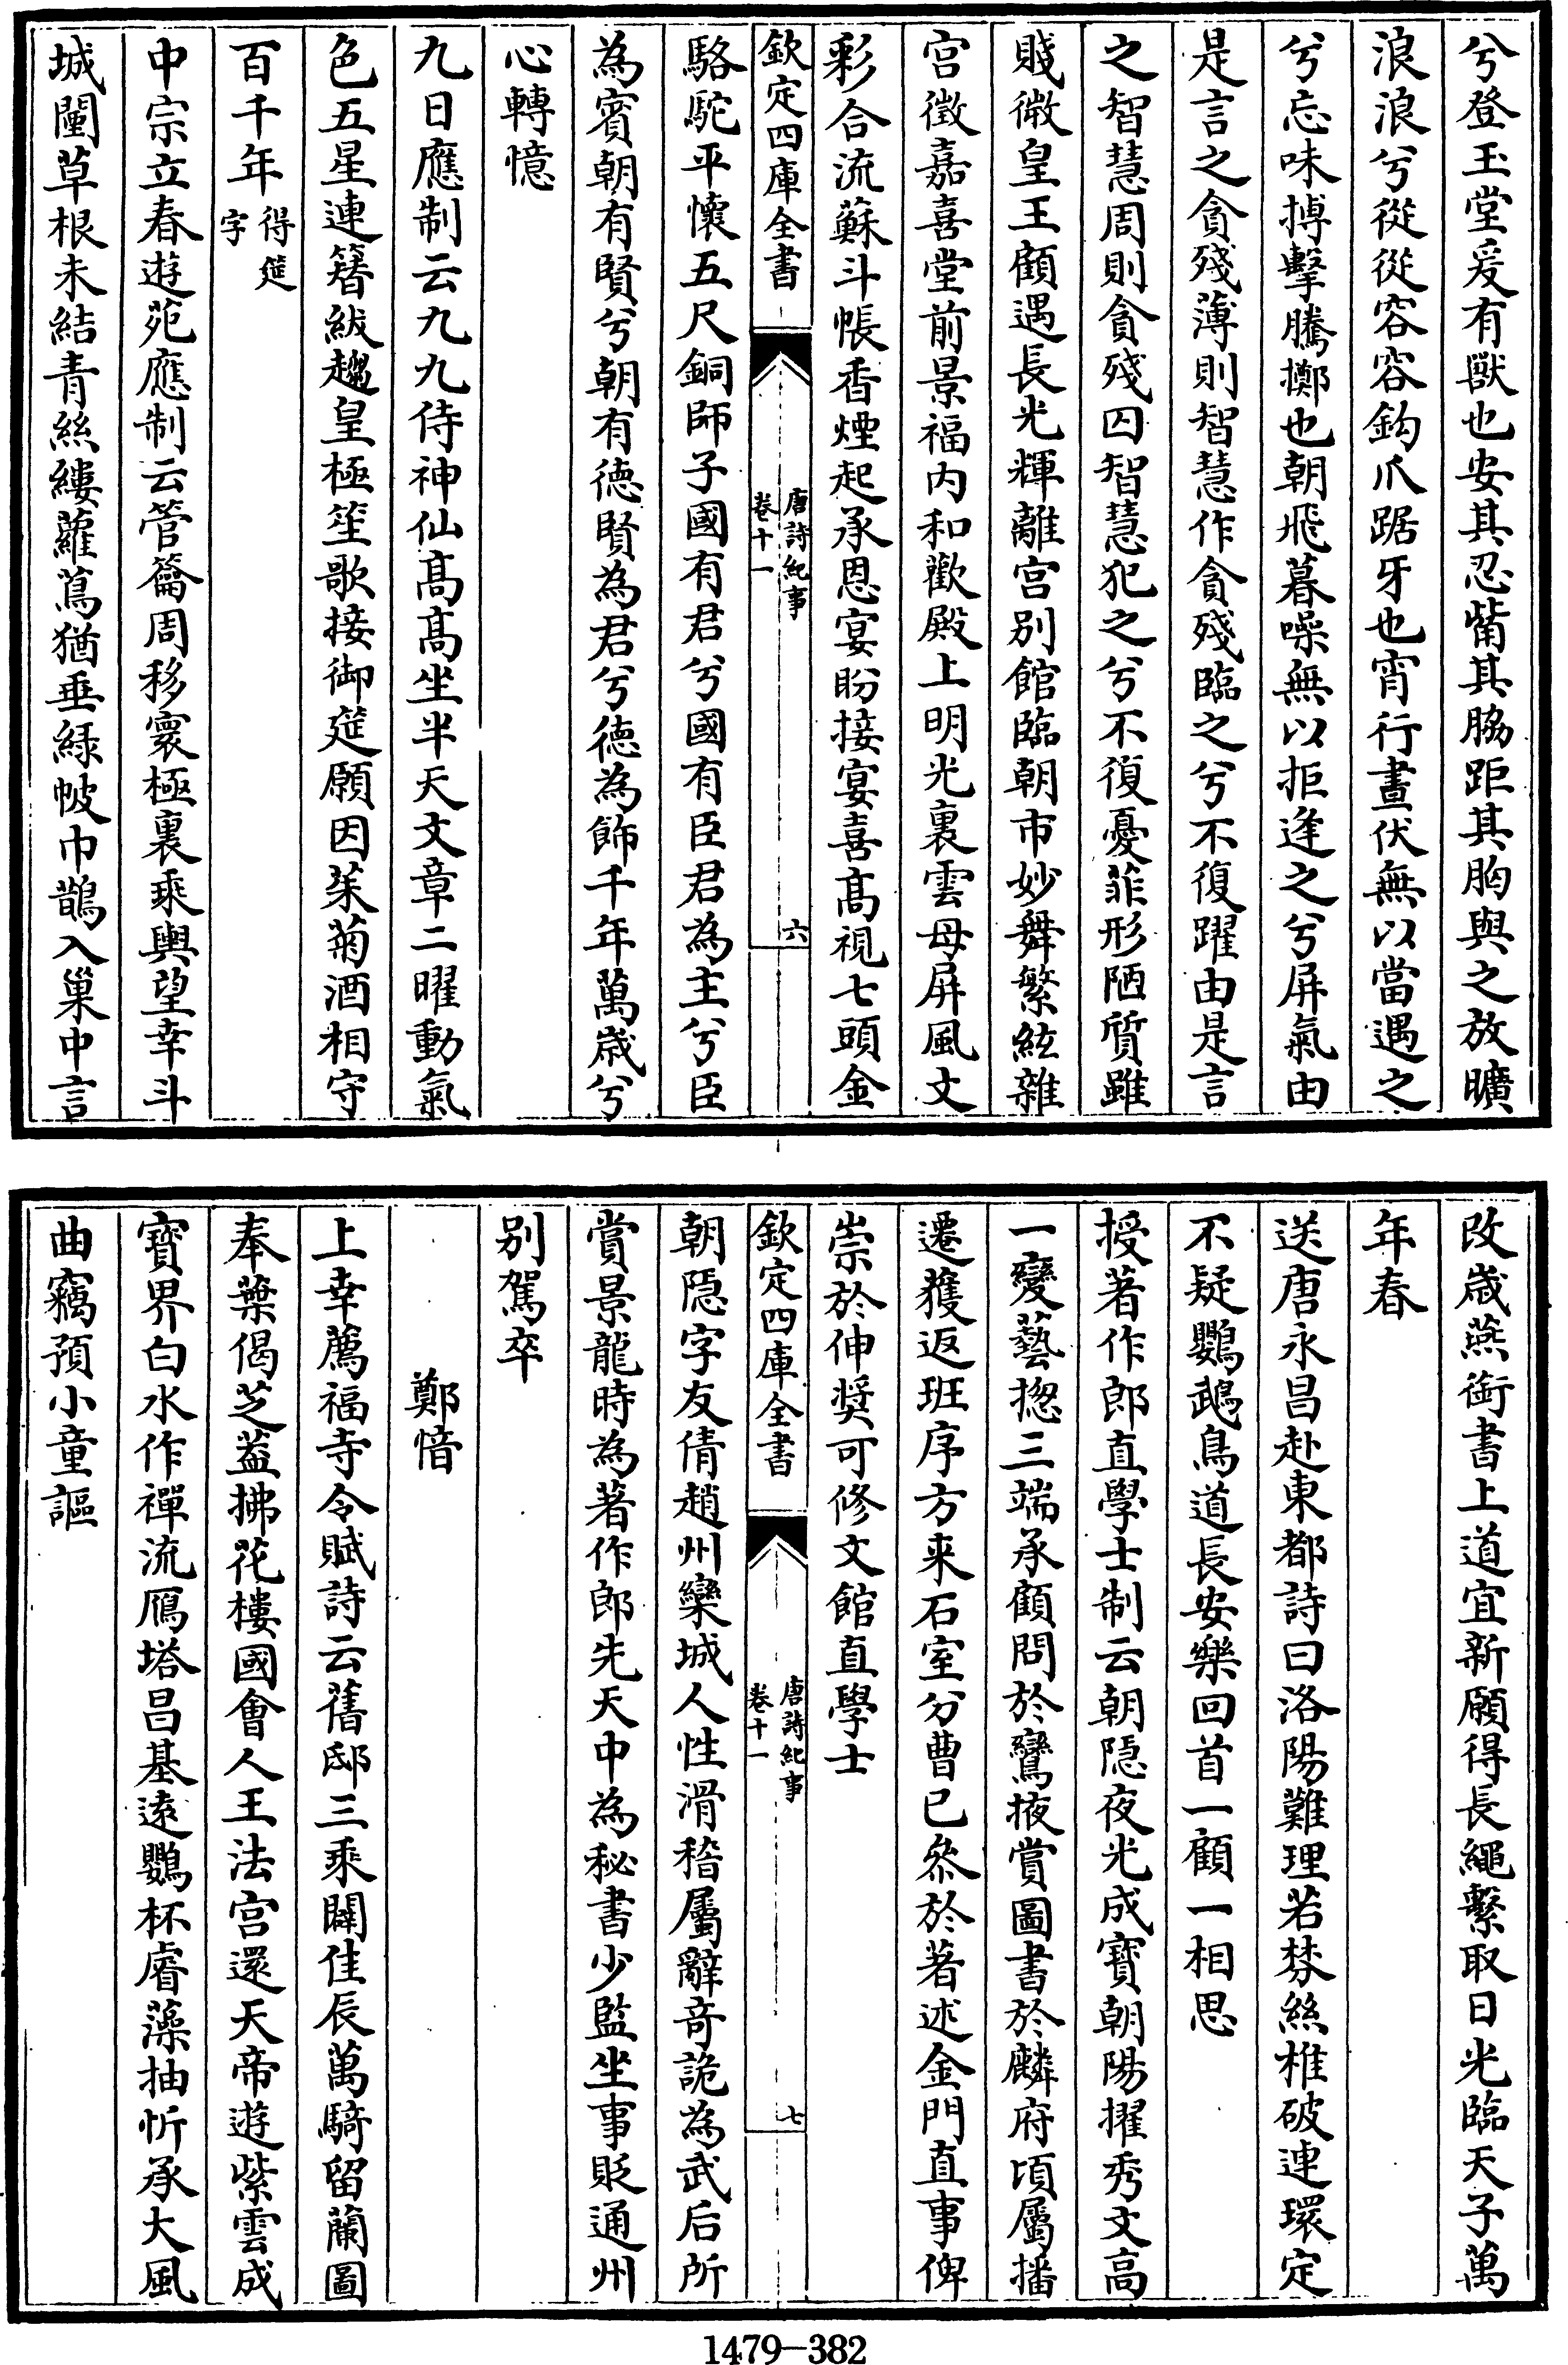 兮登玉堂爰有獸也安其忍觜其脇距其胸與之放曠
浪浪兮從從容容鈎爪踞牙也宵行晝伏無以當遇之
兮忘味搏擊騰擲也朝飛暮噪無以拒逢之兮屏氣由
是言之貪殘薄則智慧作貪殘臨之兮不復躍由是言
之智慧周則貪殘囚智慧犯之兮不復憂菲形陋質雖
賤微皇王顧遇長光輝離宫别館臨朝市妙舞繁絃雜
宫徵嘉喜堂前景福内和歡殿上明光裏雲母屏風文
彩合流蘇斗帳香煙起承恩宴盼接宴喜髙視七頭金
欽定四庫全書
唐詩紀事
卷十一
六
駱駝平懷五尺銅師子國有君兮國有臣君為主兮臣
為賓朝有賢兮朝有徳賢為君兮徳為飾千年萬嵗兮
心轉憶
九日應制云九九侍神仙髙髙坐半天文章二曜動氣
色五星連簪紱趨皇極笙歌接御筵願因茱菊酒相守
百千年得筵字
中宗立春遊苑應制云管籥周移寰極裏乘輿望幸斗
城闉草根未結青絲縷蘿蔦猶垂緑帔巾鵲入巢中言
改嵗燕銜書上道宜新願得長繩繫取日光臨天子萬
年春
送唐永昌赴東都詩曰洛陽難理若棼絲椎破連環定
不疑鸚鵡鳥道長安樂回首一顧一相思
授著作郎直學士制云朝隠夜光成寶朝陽擢秀文高
一變藝揔三端承顧問於鸞掖賞圖書於麟府頃屬播
遷獲返班序方来石室分曹已叅於著述金門直事俾
崇於伸奬可修文館直學士
欽定四庫全書
唐詩紀事
卷十一
七
朝隠字友倩趙州欒城人性滑稽屬辭奇詭為武后所
賞景龍時為著作郎先天中為秘書少監坐事貶通州
别駕卒
鄭愔
上幸薦福寺令賦詩云舊邸三乘闢佳辰萬騎留蘭圖
奉葉偈芝葢拂花樓國會人王法宫還天帝遊紫雲成
寳界白水作禪流鴈塔昌基逺鸚杯睿藻抽忻承大風
曲竊預小童謳
1479—382